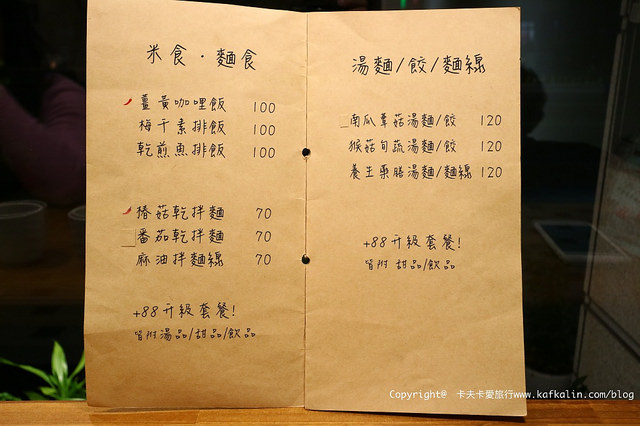 米食・麵食
薑黃咖哩飯 100
梅干素排飯 100
乾煎魚排飯 100
椿菇乾拌麵 70
番茄乾拌麵 70
麻油拌麵線 70
+88升級套餐!
皆附湯品/甜品/飲品
湯麵/餃/麵線
南瓜蕈菇湯麵/餃 120
猴菇旬蔬湯麵/餃 120
養生藥膳湯麵/麵線 120
+88升級套餐!
皆附 甜品/飲品
Copyright@ 卡夫卡愛旅行www.kafkalin.com/blog